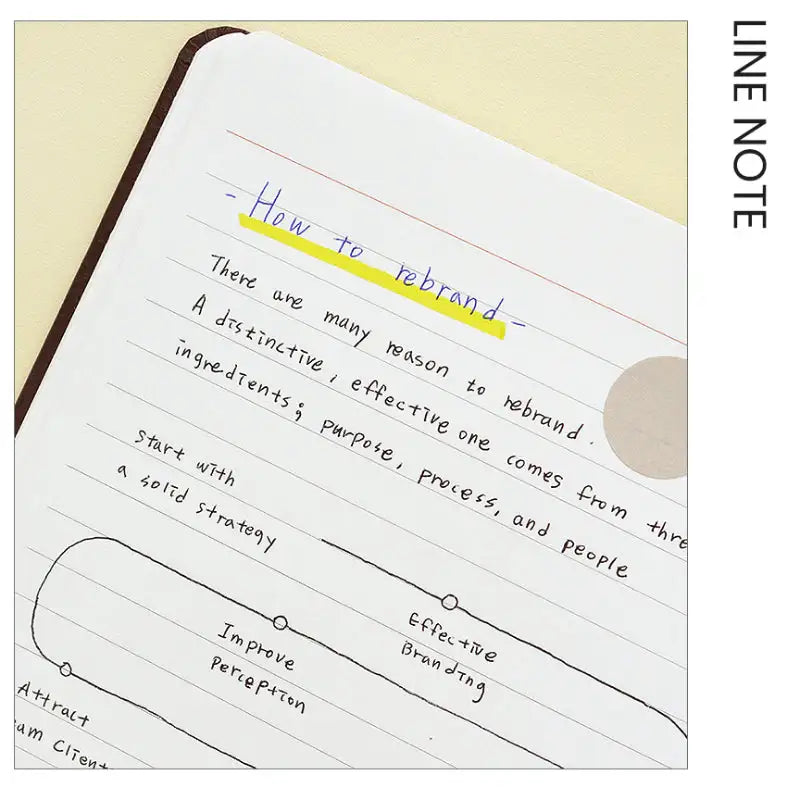 LINE NOTE
- How to rebrand -
There are many reason to rebrand.
A distinctive, effective one comes from thre
ingredients; purpose, process, and people
Start with
a solid strategy
Effective
Branding
Improve
Perception
Attract
eam Client